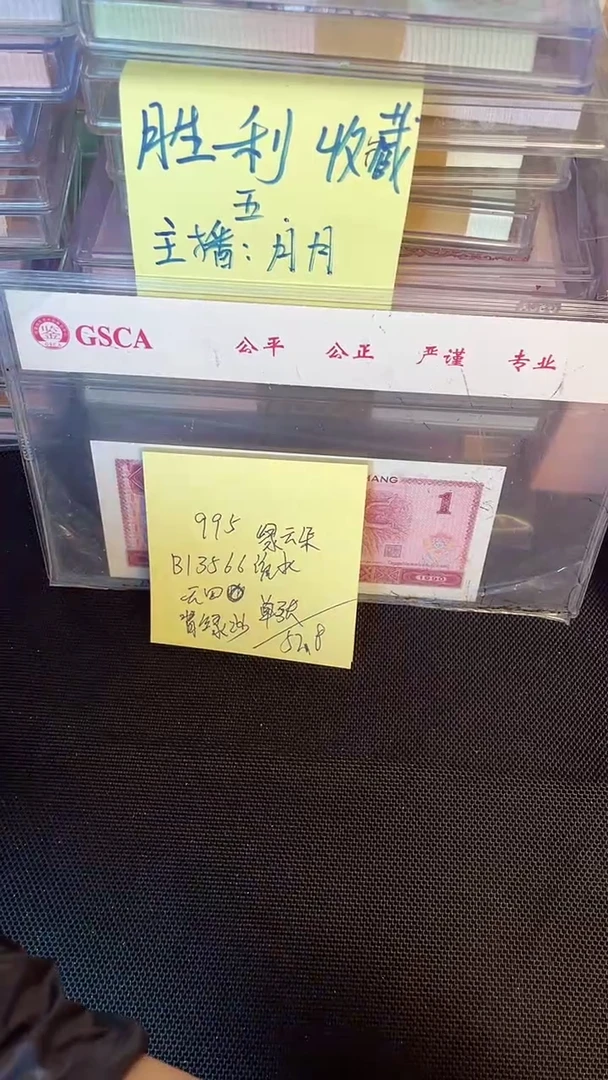 胜利收藏
五
主播:月月
GSCA 公平 公正 严谨 专业
HANG
1
995 绿云朵
B13566 绿水
云田
背绿水 单张
52.8
1990